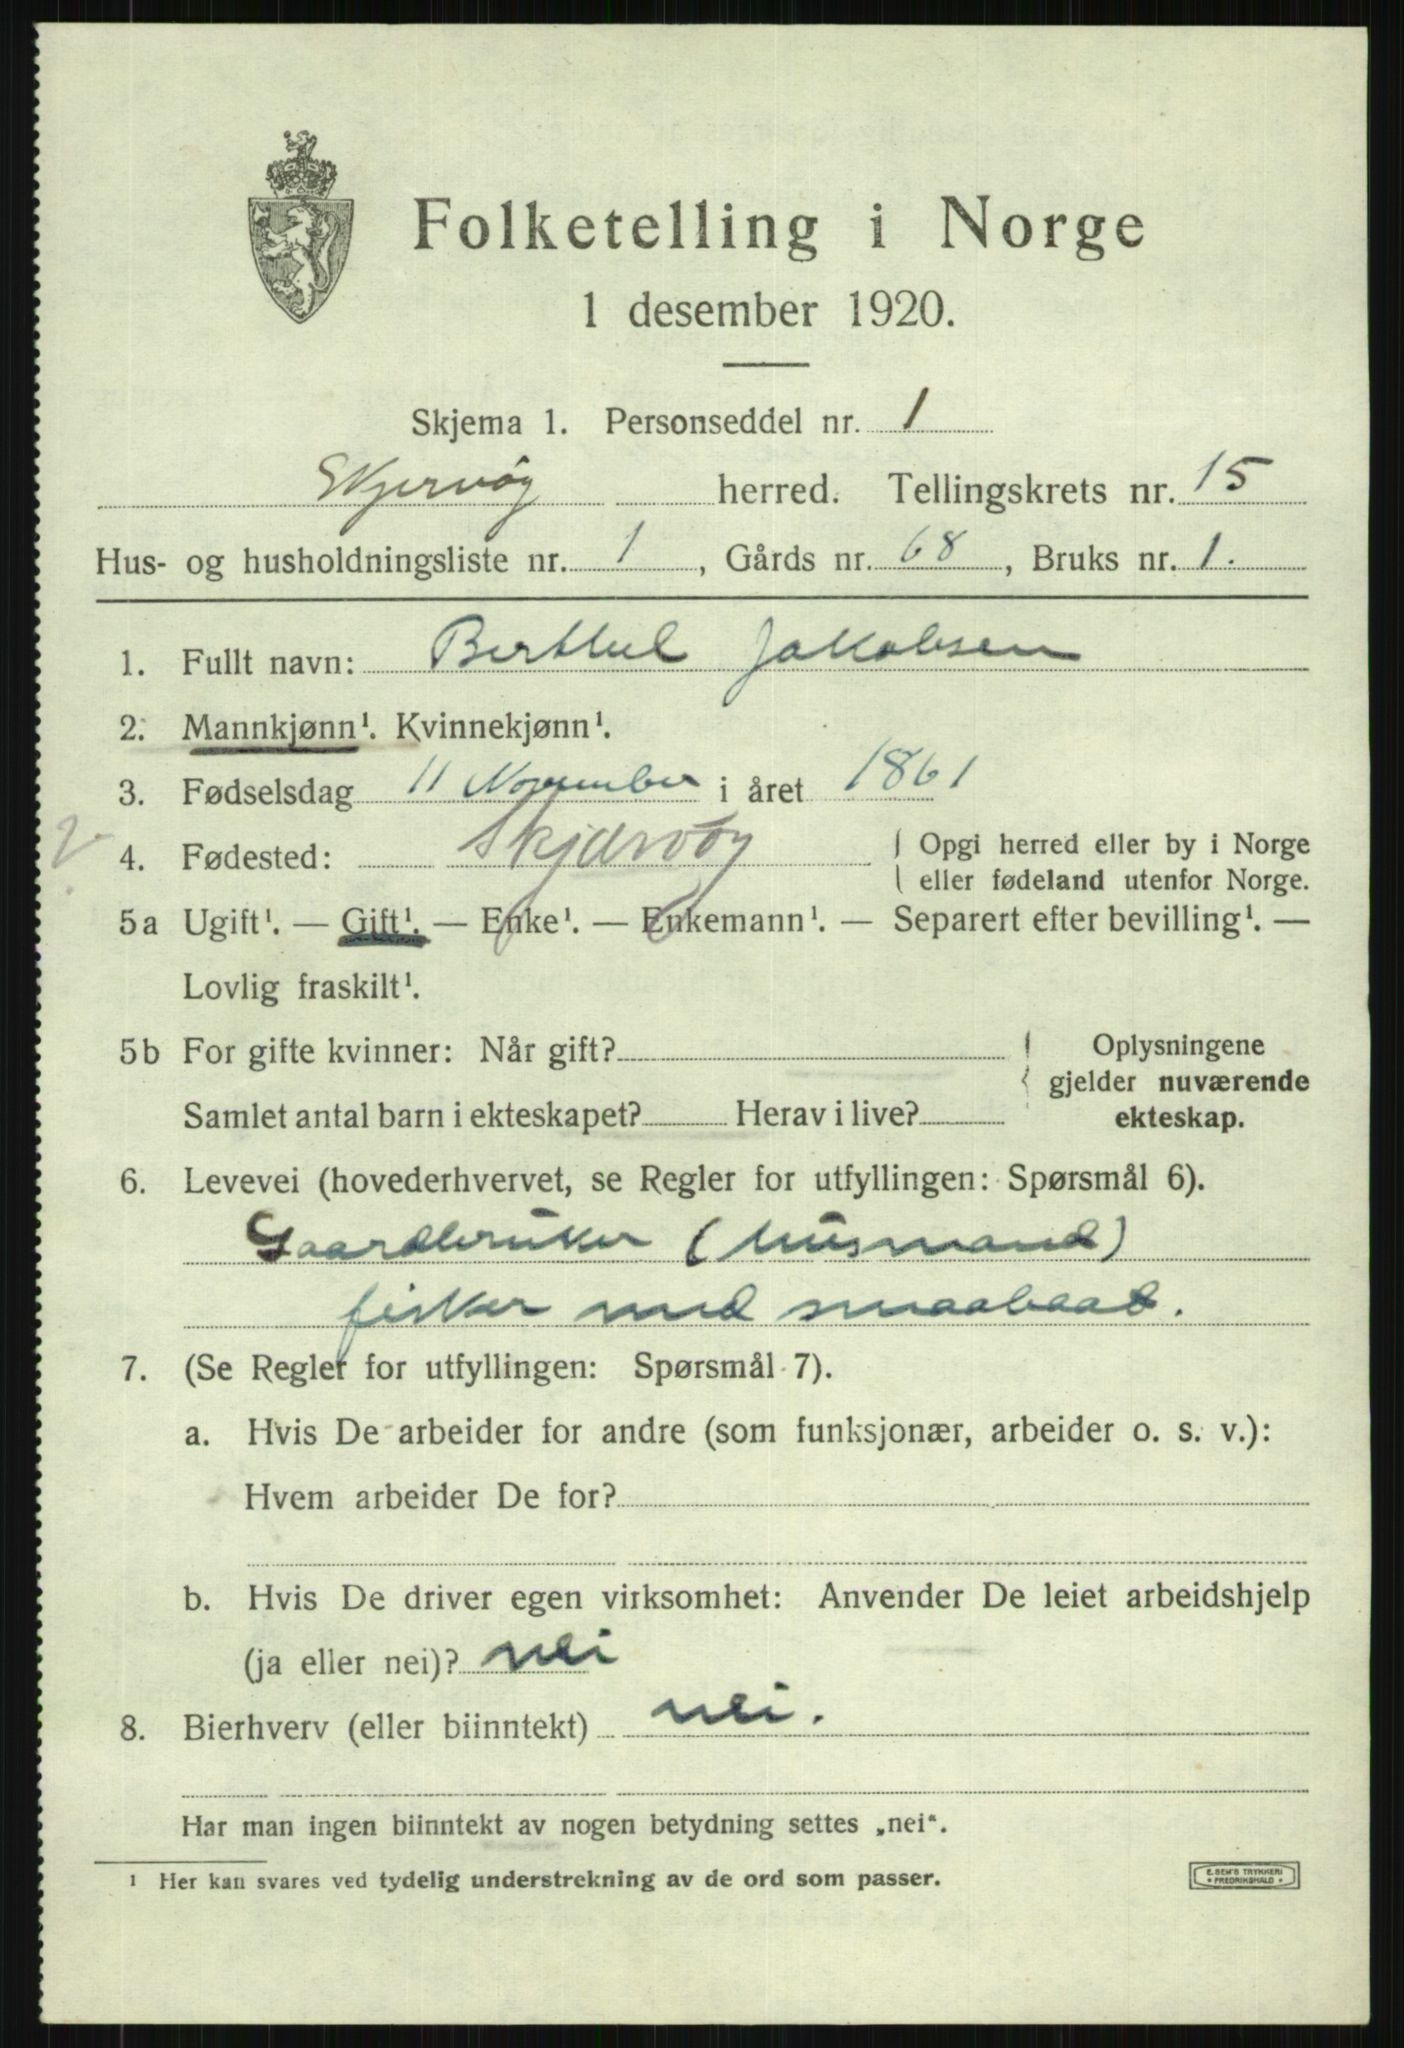 Folketelling i Norge
1 desember 1920.
Skjema 1. Personseddel nr. 1
Skjervöy herred. Tellingskrets nr. 15
Hus- og husholdningsliste nr. 1, Gårds nr. 68, Bruks nr. 1.
1. Fullt navn: Berthel Jakobsen
2. Mannkjønn¹. Kvinnekjønn¹.
3. Fødselsdag 11 November i året 1861
4. Fødested: Skjervöy { Opgi herred eller by i Norge
eller fødeland utenfor Norge.
5a Ugift¹. — Gift¹. — Enke¹. — Enkemann¹. — Separert efter bevilling¹. —
Lovlig fraskilt¹.
5b For gifte kvinner: Når gift? { Oplysningene
gjelder nuværende
Samlet antal barn i ekteskapet? Herav i live? ekteskap.
6. Levevei (hovederhvervet, se Regler for utfyllingen: Spørsmål 6).
Gaardbruker (husmand)
fisker med smaabaad.
7. (Se Regler for utfyllingen: Spørsmål 7).
a. Hvis De arbeider for andre (som funksjonær, arbeider o. s. v.):
Hvem arbeider De for?
b. Hvis De driver egen virksomhet: Anvender De leiet arbeidshjelp
(ja eller nei)? nei
8. Bierhverv (eller biinntekt) nei.
Har man ingen biinntekt av nogen betydning settes „nei“.
¹ Her kan svares ved tydelig understrekning av de ord som passer.
E. SEM'S TRYKKERI
• FREDRIKSHALD •